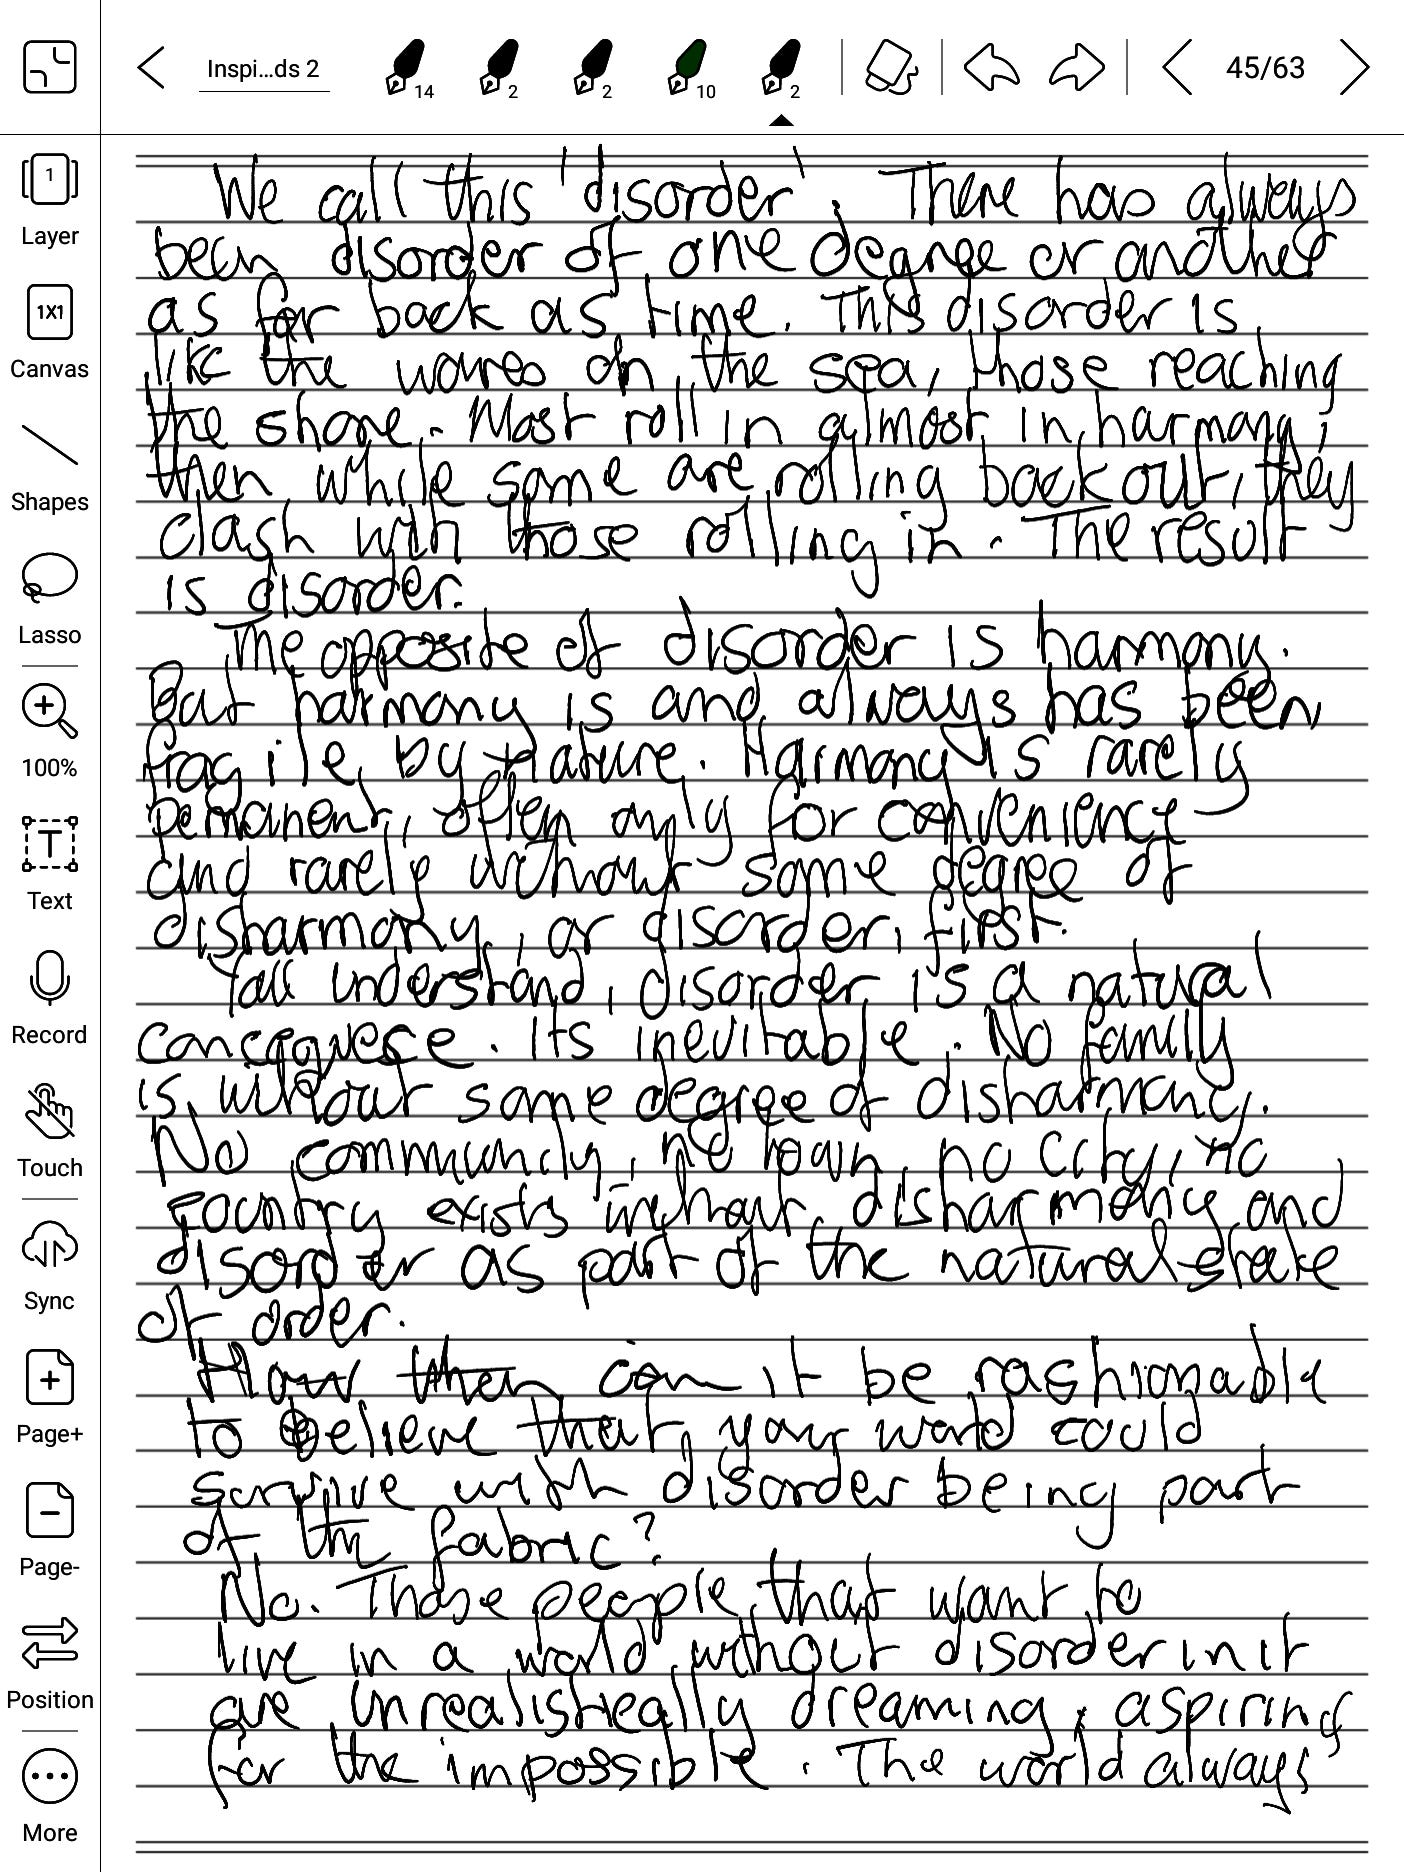 Inspi...ds 2
14
2
2
10
2
45/63
1
Layer
1X1
Canvas
Shapes
Lasso
100%
T
Text
Record
Touch
Sync
Page+
Page-
Position
More
We call this 'disorder'. There has always
been disorder of one degree or another
as far back as time. This disorder is
like the waves on the sea, those reaching
the shore. Most roll in almost in harmony,
then while some are rolling back out, they
clash with those rolling in. The result
is disorder.
The opposite of disorder is harmony.
But harmony is and always has been,
fragile, by nature. Harmony is rarely
permanent, often only for convenience
and rarely without some degree of
disharmony, or disorder, first.
Y'all understand, disorder is a natural
conseqvece. Its inevitable. No family
is without some degree of disharmony.
No community, no town, no city, no
country exists without disharmony and
disorder as part of the natural state
of order.
How then can it be fashionable
to believe that your world could
survive with disorder being part
of the fabric?
No. Those people that want to
live in a world without disorder in it
are unrealistically dreaming, aspiring
for the impossible. The world always